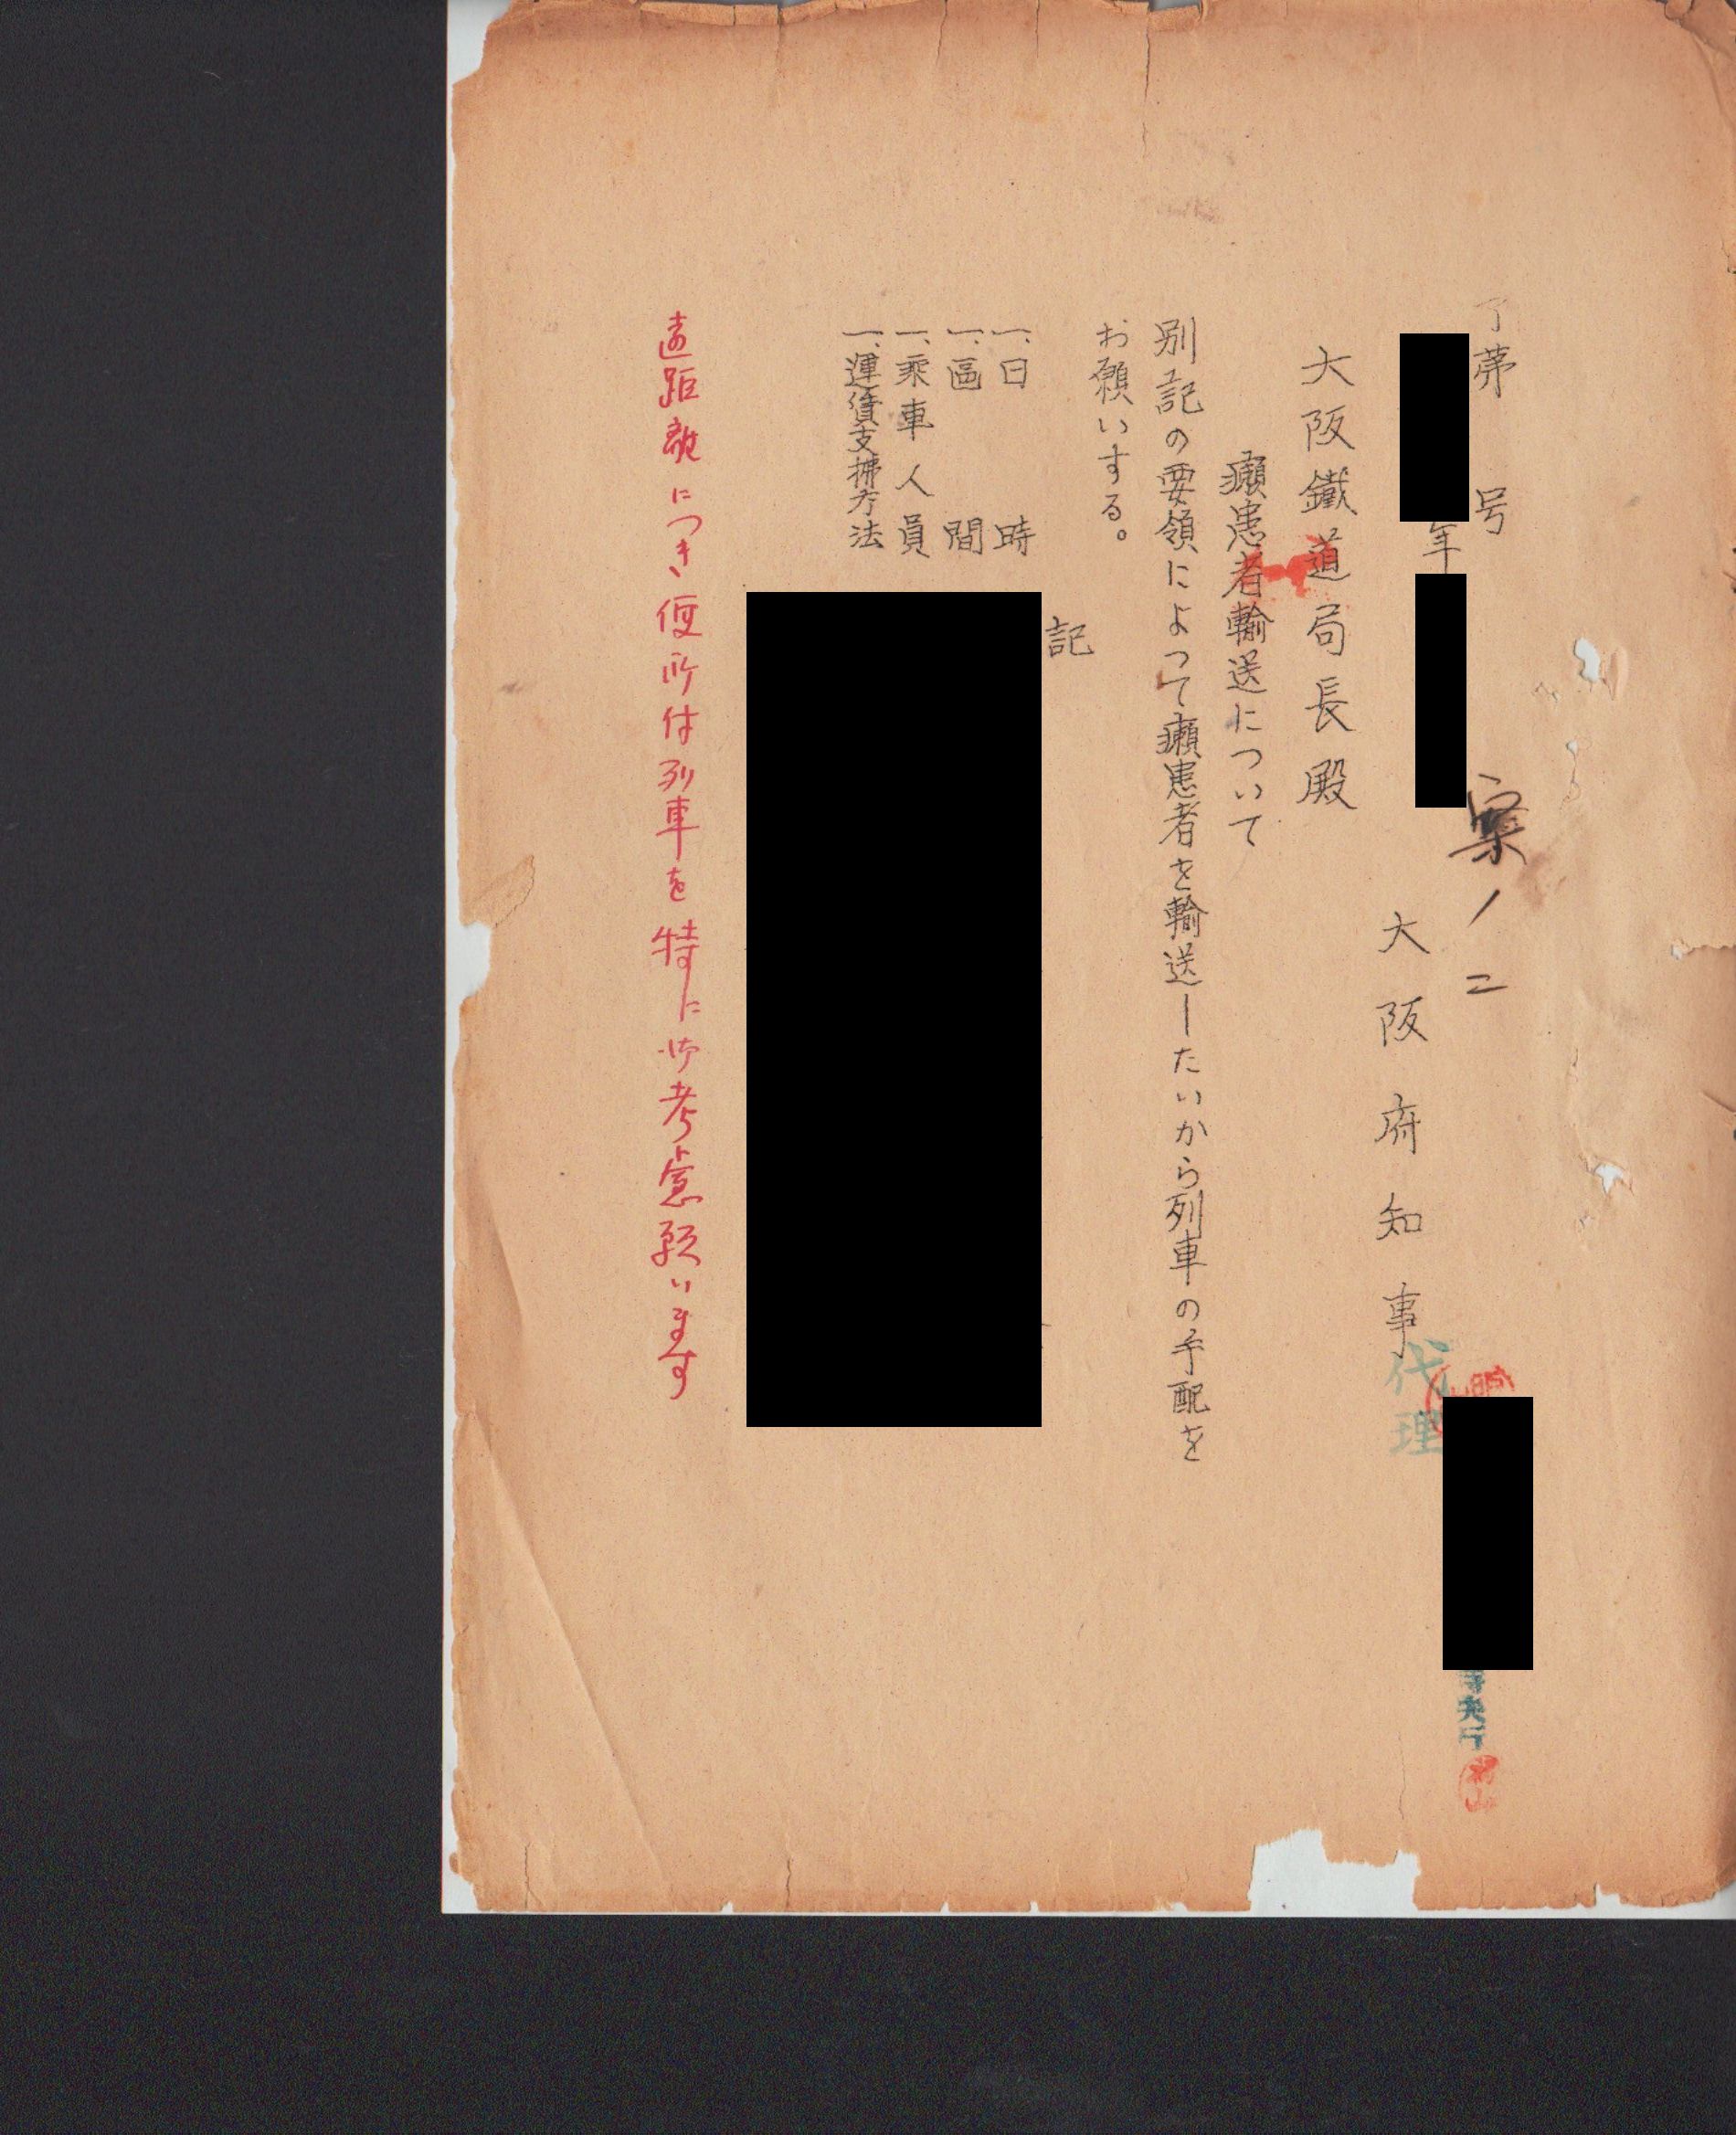 案ノ二
第 号
年
大阪府知事
代理
大阪鐵道局長殿
癩患者輸送について
別記の要領によって癩患者を輸送したいから列車の手配を
お願いする。
記
一、日時
一、區間
一、乘車人員
一、運賃支拂方法
遠距離につき便所付列車を特に御考慮願います